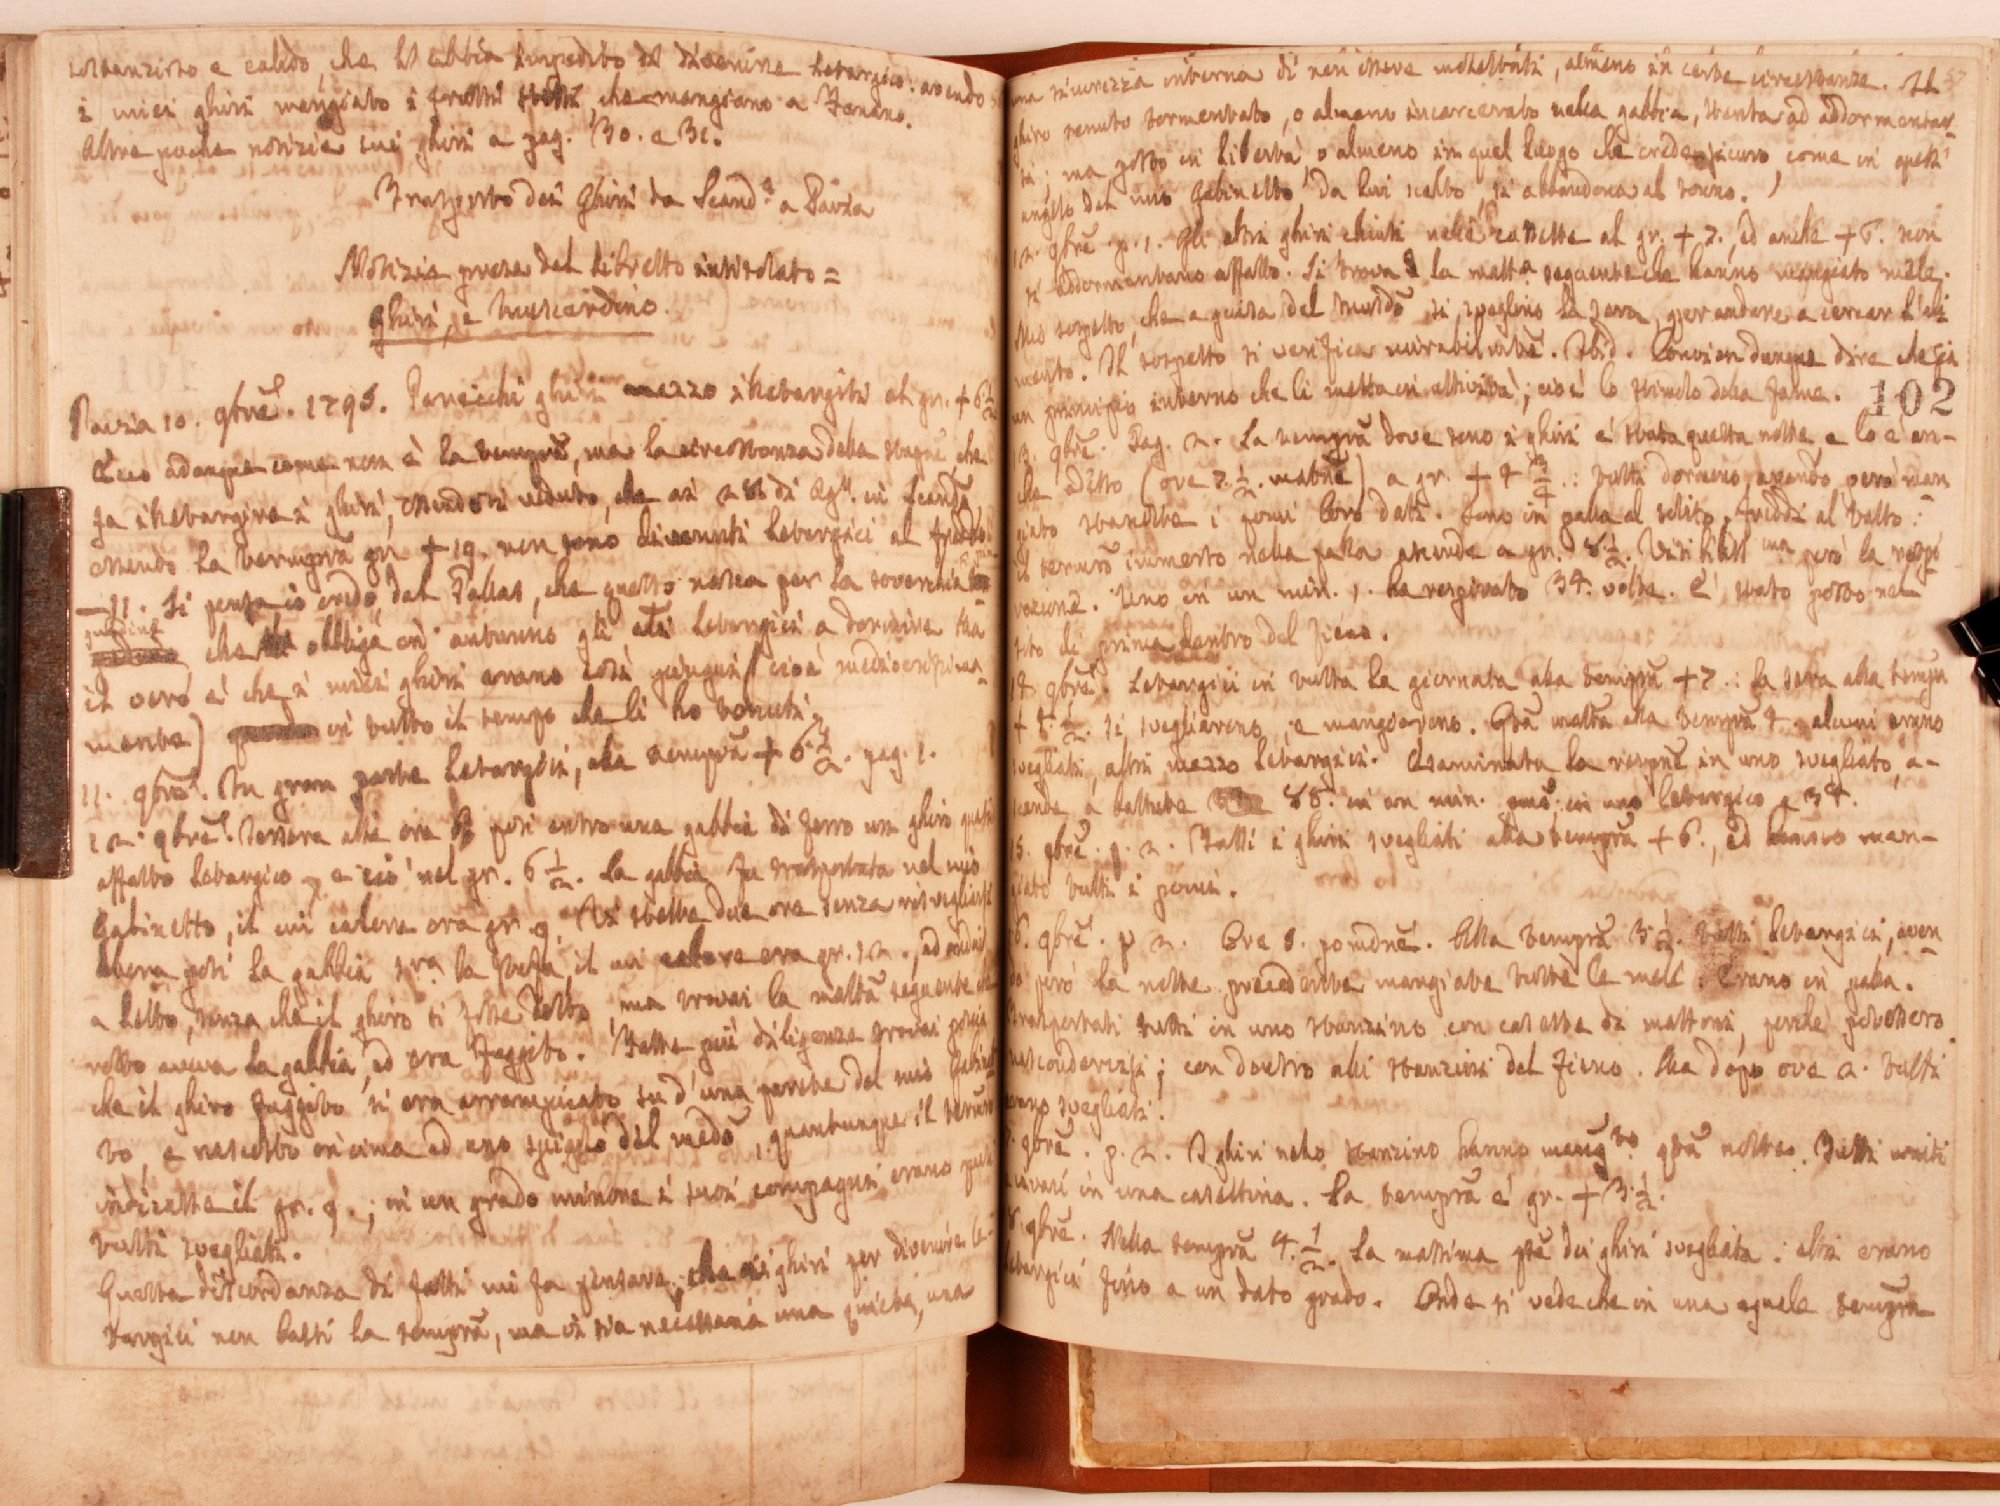 sostanzioso e calido, che li abbia impedito di divenire letargici: avendo
i miei ghiri mangiato i frutti stessi che mangiano a Fanano.
Altre poche notizie sui ghiri a pag. 30. e 31.
Trasporto dei Ghiri da Scand.º a Pavia
Notizie prese dal libretto intitolato =
Ghiri, e Muscardino.
Pavia 10. 9bre. 1795. Parecchi ghiri mezzo iletargiti al gr. + 6 1/2
Ecco adunque come non è la temprã, ma la circostanza della stagnẽ, che
fa iletargire i ghiri, essendosi veduto, che ai 28 di Ag. in Scandº,
essendo la temprã gr. + 19. non sono divenuti letargici al freddo
– 11. Si pensa io credo dal Pallas, che questo nasca per la soverchia
pinguedine che obbliga in autunno gli letargici a dormire. Ma
il vero è che i miei ghiri erano così pingui (cioè mediocrissima-
mente) in tutto il tempo che li ho tenuti.
11. 9bre. In gran parte letargici, alla temprã + 6 1/2. pag. 1.
12. 9bre. Iersera alle ore posi entro una gabbia di ferro un ghiro quasi
affatto letargico, e ciò nel gr. 6 1/2. La gabbia fu trasportata nel mio
Gabinetto, il cui calore era gr. 9. Vi stette due ore senza risvegliarsi
Allora posi la gabbia sra la stufa, il cui calore era gr. 12., ed andai
a letto, senza che il ghiro si fosse desto, ma trovai la mattã seguente che
rotto aveva la gabbia, ed era fuggito. Fatte più diligenze trovai poscia
che il ghiro fuggito si era arrampicato su d'una parete del mio Gabinet
to, e nascosto in cima ad uno spigolo del medõ, quantunque il termro
indicasse il gr. 9.; in un grado minore i suoi compagni erano quasi
tutti svegliati.
Questa discordanza di fatti mi fa pensare, che ai ghiri per divenire le-
targici non basti la temprã, ma vi sia necessaria una quiete, una
una sicurezza interna di non essere molestati, almeno in certe circostanze. Il 57
ghiro tenuto tormentato, o almeno incarcerato nella gabbia, stenta ad addormentar-
si; ma posto in libertà, o almeno in quel luogo che crede sicuro, come in quell'
angolo del mio Gabinetto, da lui scelto, si abbandona al sonno.
12. 9bre p. 1. Gli altri ghiri chiusi nelle cassette al gr. + 7., ed anche + 6. non
si addormentano affatto. Si trova la matta seguente che hanno mangiato mele.
Mio sospetto, che a guisa del muscdº si sveglino la sera, per andare a cercar l'ali
mento. Il sospetto si verifica mirabilmtẽ. Ibid. Convien dunque dire che sia
un principio interno che li metta in attività; cioè lo stimolo della fame. 102
13. 9bre. Pag. 2. La temprã dove sono i ghiri è stata questa notte e lo è an-
che adesso (ore 7. 1/2. matnẽ) a gr. + 4 3/4.: tutti dormono, avendo però man
giato stanotte i pomi loro dati. Sono in palla al solito, freddi al tatto.
Il termrõ immerso nella palla ascende a gr. 8 1/2. Visibiliss.ma però la respi
razione. Uno in un min. 1. ha respirato 34. volte. È stato posto nel
sito di prima dentro del fieno.
14. 9bre. Letargici in tutta la giornata alla temprã + 7.: la sera alla temprã
+ 5. 1/2. si svegliarono, e mangiarono. Qstã mattã alla temprã 4. alcuni erano
svegliati, altri mezzo letargici. Esaminata la respnẽ in uno svegliato, a-
scende a battute 88. in un min. pmõ; in uno letargico, 34.
15. 9bre. p. 2. Tutti i ghiri svegliati alla temprã + 6., ed hanno man-
giato tutti i pomi.
16. 9bre. p 2. Ore 8. pomdnẽ. Alla temprã 3 1/2. tutti letargici, aven
do però la notte precedente mangiate tutte le mele. Erano in palla.
Trasportati tutti in uno stanzino con casette di mattoni, perchè potessero
nascondervisi; con dentro alli stanzini del fieno. Ma dopo ore 2. tutti
erano svegliati.
17. 9bre. p. 2. I ghiri nello stanzino hanno mangto. qstã notte. Tutti uniti
trovai in una casettina. La temprã è gr. + 3 1/2.
18. 9bre. Nella temprã 4. 1/2. La massima ptẽ dei ghiri svegliata: altri erano
letargici fino a un dato grado. Onde si vede che in una eguale temprã